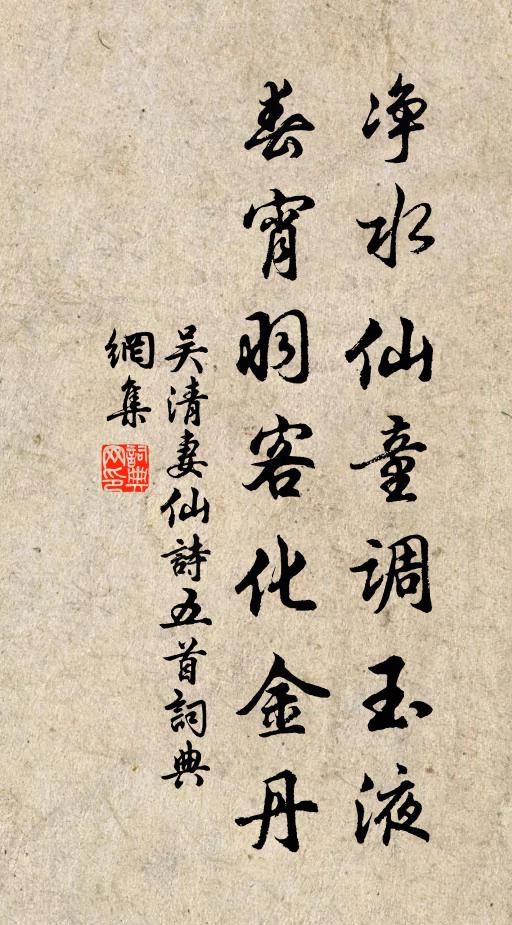 净水仙童调玉液
春宵羽客化金丹
吴清妻仙詩五首詞典
網集
詞典
网印